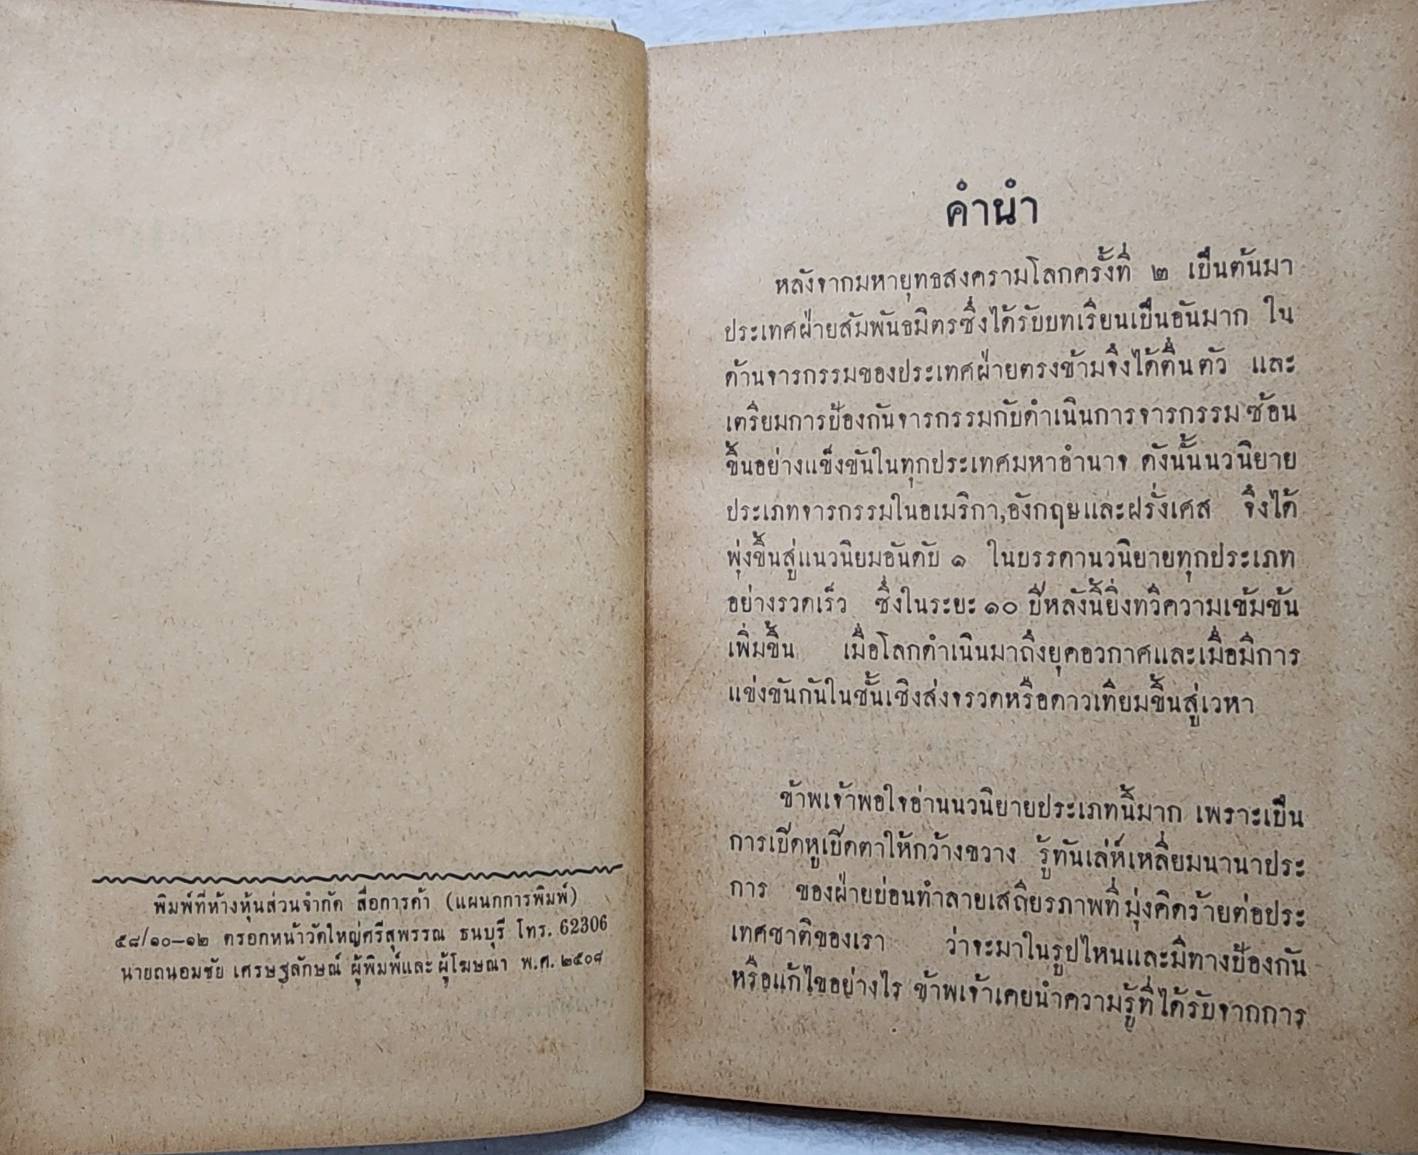 พิมพ์ที่ห้างหุ้นส่วนจำกัด สื่อการค้า (แผนกการพิมพ์)
๕๘/๑๐—๑๒ ตรอกหน้าวัดใหญ่ศรีสุพรรณ ธนบุรี โทร. 62306
นายถนอมชัย เศรษฐลักษณ์ ผู้พิมพ์และผู้โฆษณา พ.ศ. ๒๕๐๘
คำนำ
หลังจากมหายุทธสงครามโลกครั้งที่ ๒ เป็นต้นมา
ประเทศฝ่ายสัมพันธมิตรซึ่งได้รับบทเรียนเป็นอันมาก ใน
ด้านจารกรรมของประเทศฝ่ายตรงข้ามจึงได้ตื่นตัว และ
เตรียมการป้องกันจารกรรมกับดำเนินการจารกรรมซ้อน
ขึ้นอย่างแข็งขันในทุกประเทศมหาอำนาจ ดังนั้นนวนิยาย
ประเภทจารกรรมในอเมริกา,อังกฤษและฝรั่งเศส จึงได้
พุ่งขึ้นสู่แนวนิยมอันดับ ๑ ในบรรดานวนิยายทุกประเภท
อย่างรวดเร็ว ซึ่งในระยะ ๑๐ ปีหลังนี้ยิ่งทวีความเข้มข้น
เพิ่มขึ้น เมื่อโลกดำเนินมาถึงยุคอวกาศและเมื่อมีการ
แข่งขันกันในชั้นเชิงส่งจรวดหรือดาวเทียมขึ้นสู่เวหา
ข้าพเจ้าพอใจอ่านนวนิยายประเภทนี้มาก เพราะเป็น
การเปิดหูเปิดตาให้กว้างขวาง รู้ทันเล่ห์เหลี่ยมนานาประ
การ ของฝ่ายบ่อนทำลายเสถียรภาพที่มุ่งคิดร้ายต่อประ
เทศชาติของเรา ว่าจะมาในรูปไหนและมีทางป้องกัน
หรือแก้ไขอย่างไร ข้าพเจ้าเคยนำความรู้ที่ได้รับจากการ